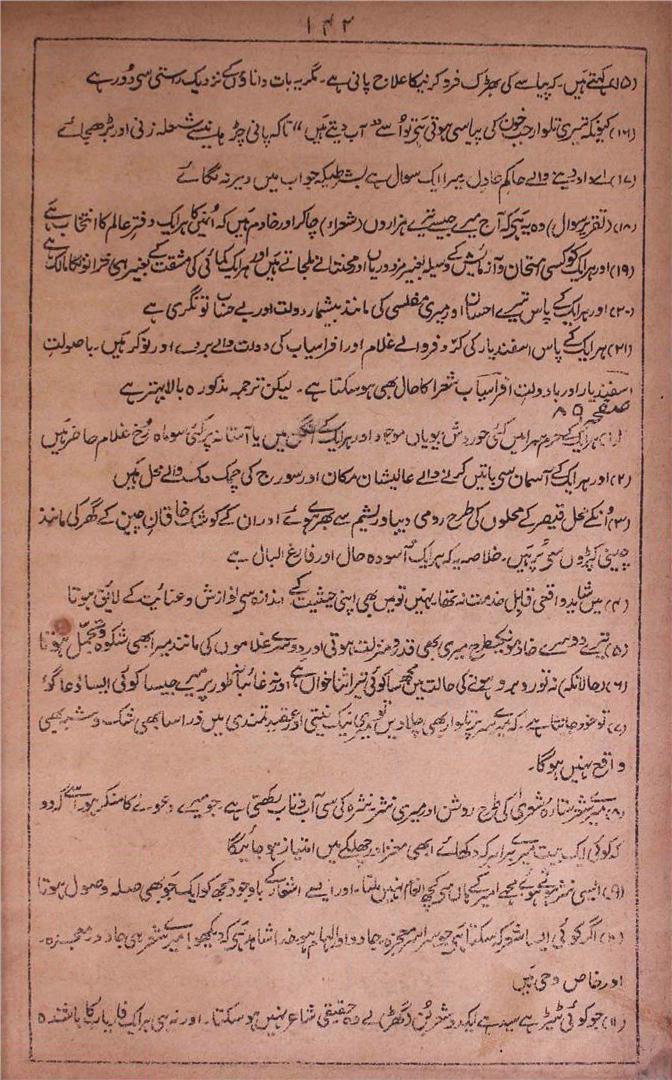 ۱۴۲
(۱۵) کہتے ہیں۔ کہ پیاسے کی بھڑک فرو کرنیکا علاج پانی ہے۔ مگر یہ بات داناؤں کے نزدیک رستی سی دور ہے
(۱۶) کیونکہ تیری تلوار جب خون کی پیاسی ہوتی ہے تو اُسے "آب دیتے ہیں" تاکہ پانی چڑہانیسے شعلہ زنی اور بڑھجائے
(۱۷) اے داد دینے والے حاکم عادل میرا ایک سوال ہے بشرطیکہ جواب میں دیر نہ لگائے
(۱۸) (تقریر سوال) وہ یہ ہے کہ آج میرے جیسے تیرے ہزاروں (شعراء) چاکر اور خادم ہیں کہ اُنمیں کا ہر ایک دفتر عالم کا انتخاب ہے
(۱۹) اور ہر ایک کو کسی امتحان و آزمائش کے وسیلہ بغیر مزدوریاں اور محنتانے ملجاتے ہیں اور ہر ایک کمائی کی مشقت کے بغیر ہی خزانونکا مالک ہے
(۲۰) اور ہر ایک کے پاس تیرے احسان اور میری مفلسی کی مانند بیشمار دولت اور بے حساب تونگری ہے
(۲۱) ہر ایک کے پاس اسفندیار کی کرّ و فر والے غلام اور افراسیاب کی دولت والے بردے اور نوکر ہیں۔ باصولتِ
اسفندیار اور بادولتِ افراسیاب شعرا کا حال بھی ہوسکتا ہے۔ لیکن ترجمہ مذکورہ بالا بہتر ہے
صفحہ ۸۹
(۱) ہر ایک کے حرم سرا میں کئی حوروش بیویاں موجود اور ہر ایک کے آنگن میں یا آستانہ پر کئی سو ماہ رخ غلام حاضر ہیں
(۲) اور ہر ایک کے آسمان سی باتیں کرنے والے عالیشان مکان اور سورج کی چمک دمک والے محل ہیں
(۳) اُنکے محل قیصر کے محلوں کی طرح رومی دیبا و ریشم سے بھرے ہوئے اور ان کے کوشک خاقانِ چین کے گھر کی مانند
چینی کپڑوں سی پُر ہیں۔ خلاصہ یہ کہ ہر ایک آسودہ حال اور فارغ البال ہے
(۴) میں شاید واقعی قابلِ خدمت نہ تھا۔ نہیں تو میں بھی اپنی حیثیت کے اندازہ سی نوازش و عنایت کے لائق ہوتا
(۵) تیرے دوسرے خادمونکیطرح میری بھی قدر و منزلت ہوتی اور دوسرے غلاموں کی مانند میرا بھی شکوہ و تجمّل ہوتا
(۶) (حالانکہ) نہ تو رو برو ہونے کی حالت میں مجھ سا کوئی تیرا ثنا خواں ہے اور نہ غائبانہ طور پر میرے جیسا کوئی ایسا دعا گو
(۷) تو خود جانتا ہے۔ کہ میرے سر پر تلوار بھی چلادیں تو میری نیک نیتی اور عقیدتمندی میں ذرا سا بھی شک و شبہ بھی
واقع نہیں ہوگا۔
(۸) میرے شعر ستارہ شعریٰ کی طرح روشن اور میری نثر نثرہ کی سی آب و تاب رکھتی ہے۔ جو میرے دعوے کا منکر ہو اُسے کہدو
کہ کوئی ایک بیت میرے برابر کہ دکھائے ابھی مغز اور چھلکے میں امتیاز ہوجائیگا
(۹) ایسی نثر ہوتے ہوئے مجھے امیر کے ہاں سی کچھ انعام نہیں ملتا۔ اور ایسے اشعار کے باوجود مجھ کو ایک جَو بھی صلہ وصول ہوتا
(۱۰) اگر کوئی ایسا شعر کہ سکتا ہے جو سراسر معجزہ۔ جادو اور الہام ہو۔ خدا شاہد ہے کہ دیکھو! میرے شعر ہی جادو۔ معجزہ۔
اور خاص وحی ہیں
(۱۱) جو کوئی ٹیڑ ہے سیدہے ایکدو شعر بُن (گھڑ) لے وہ حقیقی شاعر نہیں ہوسکتا۔ اور نہ ہی ہر ایک فاریاب کا باشندہ